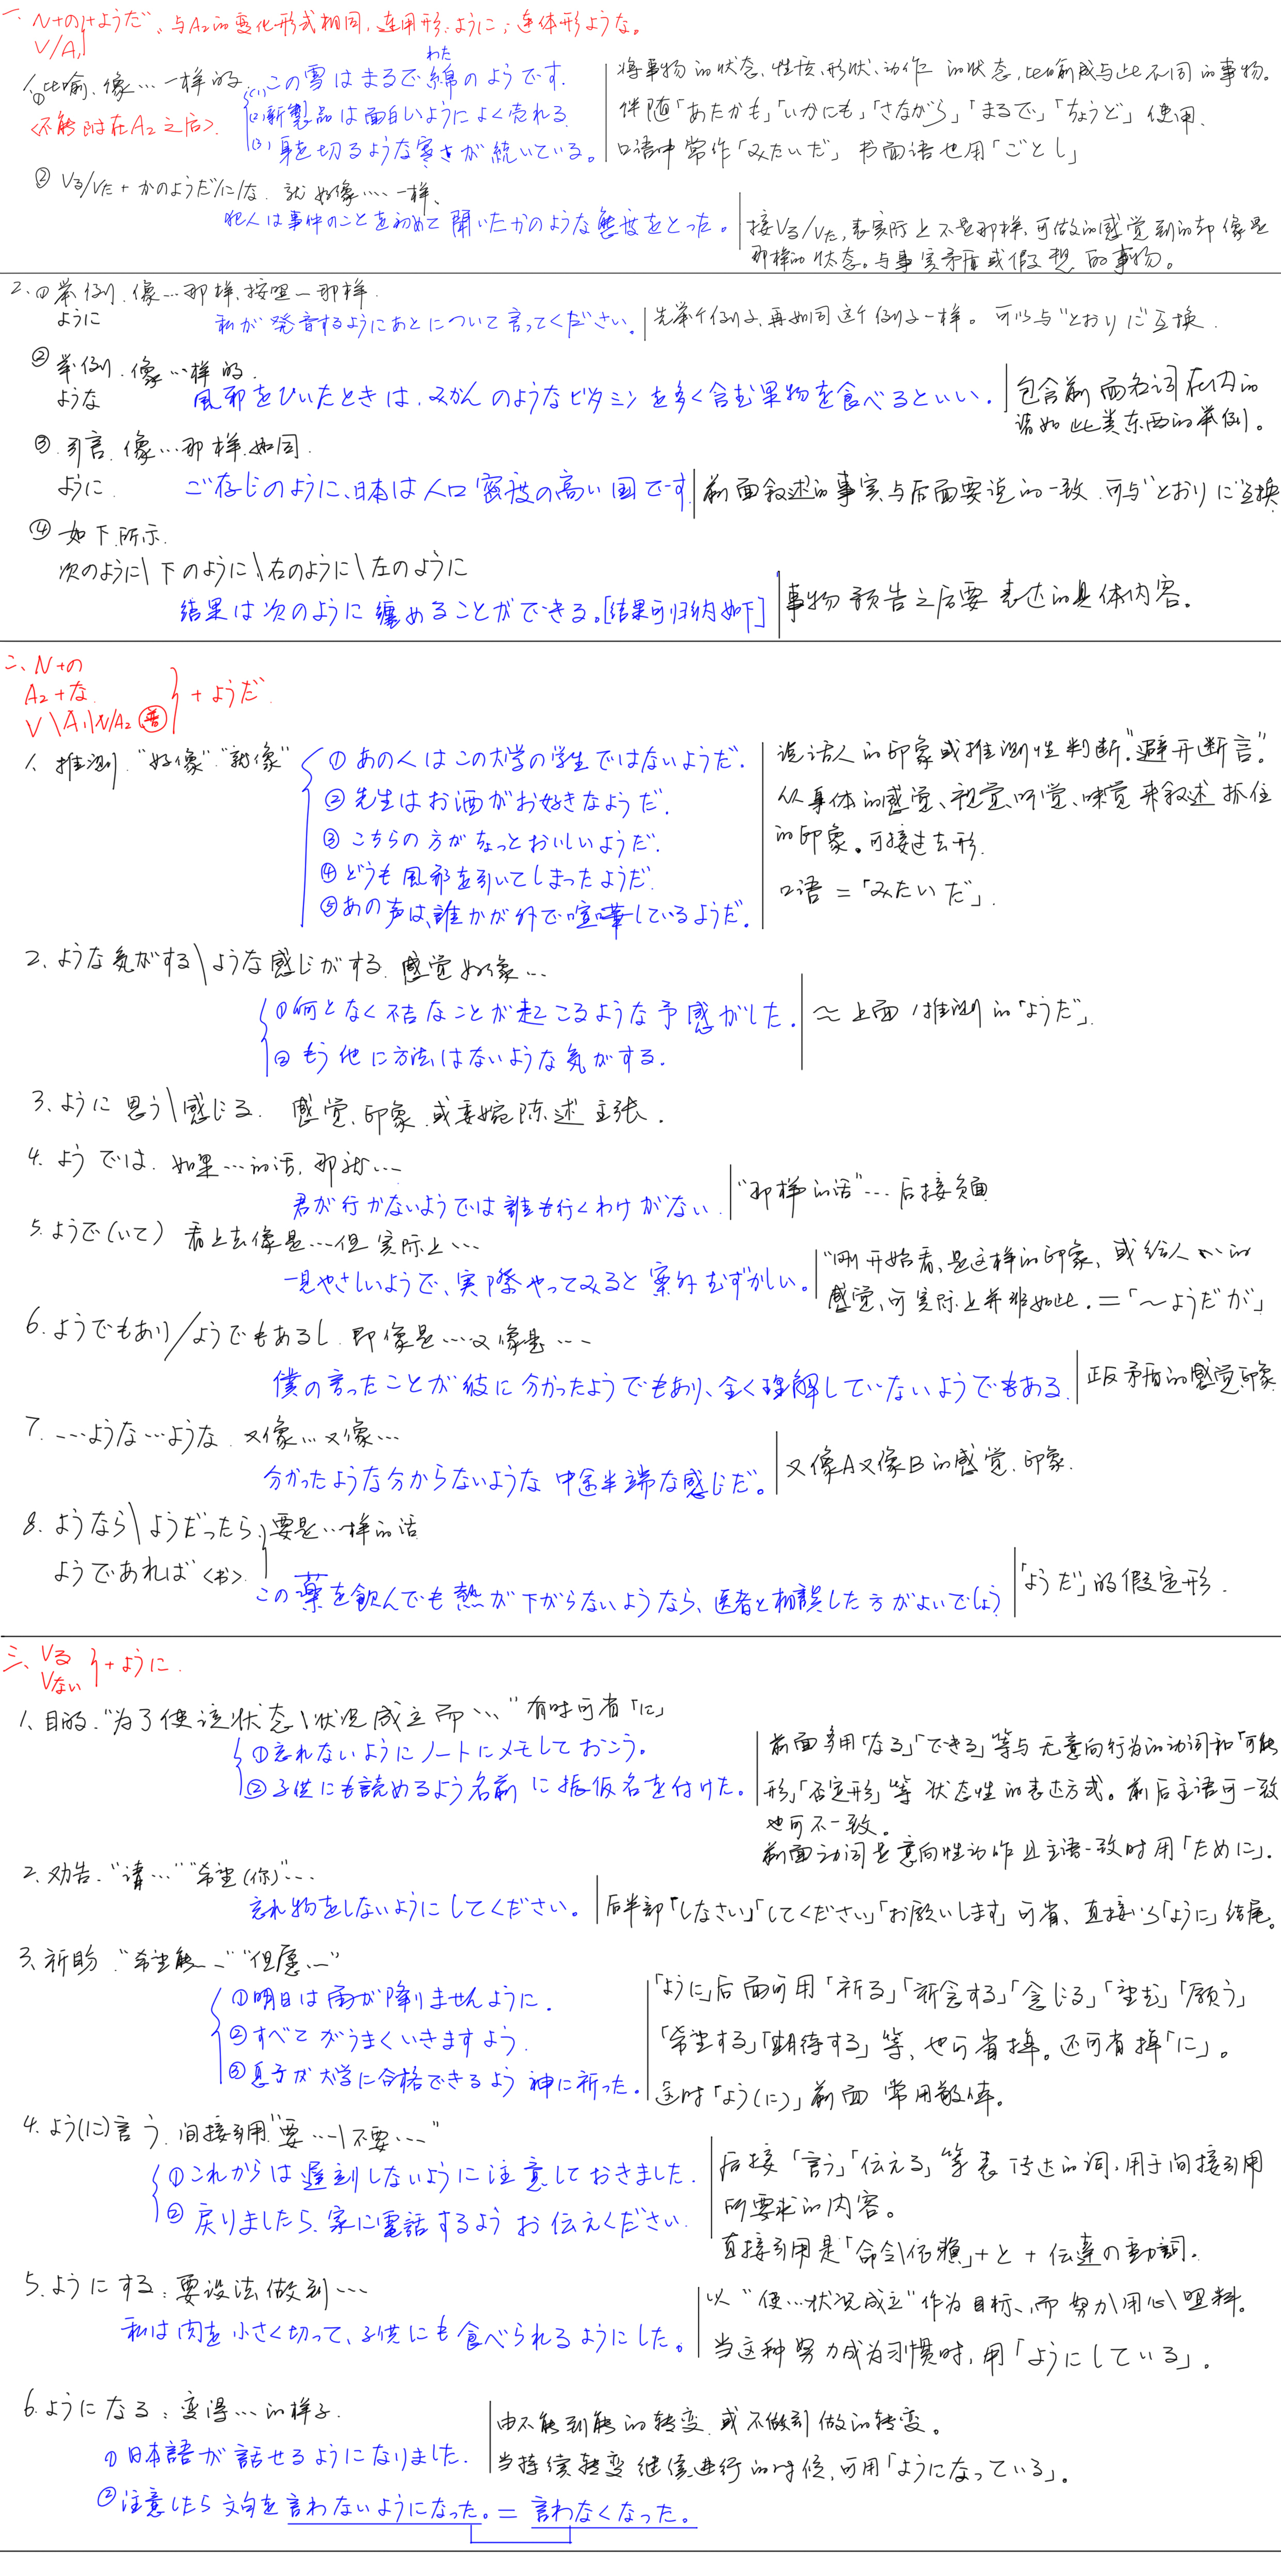 一、N+の
V/A₁ }+ようだ、与A₂的变化形式相同，连用形：ように；连体形ような。
1、①比喻、像…一样的
<不能附在A₂之后>
(1)この雪はまるで綿のようです．
わた
(2)新製品は面白いようによく売れる
(3)身を切るような寒さが続いている。
将事物的状态、性质、形状、动作的状态，比喻成与此不同的事物。
伴随「あたかも」「いかにも」「さながら」「まるで」「ちょうど」使用．
口语中常作「みたいだ」书面语也用「ごとし」
② Vる/Vた+かのようだ/に/な．就好像……一样、
犯人は事件のことを初めて聞いたかのような態度をとった。
接Vる/Vた，表实际上不是那样，可做的感觉到的却像是
那样的状态。与事实矛盾或假想的事物。
2、①举例．像…那样、按照…那样．
ように
私が発音するようにあとについて言ってください．
先举个例子，再如同这个例子一样。可以与"とおりに"互换．
②举例．像…样的．
ような
風邪をひいたときは、みかんのようなビタミンを多く含む果物を食べるといい．
包含前面名词在内的
诸如此类东西的举例。
③．引言．像…那样．如同．
ように．
ご存じのように、日本は人口密度の高い国です
前面叙述的事实与后面要说的一致．可与"とおりに"互换
④如下所示．
次のように\下のように\右のように\左のように
結果は次のように纏めることができる。[结果可归纳如下]
事物预告之后要表达的具体内容。
二、N+の
A₂+な
V\A₁\N/A₂ 普
}+ようだ．
1、推测．"好像""就像"
①あの人はこの大学の学生ではないようだ．
②先生はお酒がお好きなようだ．
③こちらの方がちょっとおいしいようだ．
④どうも風邪を引いてしまったようだ．
⑤あの声は、誰かが外で喧嘩しているようだ。
说话人的印象或推测性判断．"避开断言"
从身体的感觉、视觉、听觉、味觉来叙述抓住
的印象。可接过去形．
口语＝「みたいだ」．
2、ような気がする\ような感じがする．感觉好像…
①何となく不吉なことが起こるような予感がした．
②もう他に方法はないような気がする．
≈上面1推测的「ようだ」．
3．ように思う\感じる．感觉、印象．或委婉陈述主张．
4．ようでは．如果…的话，那就…
君が行かないようでは誰も行くわけがない．
"那样的话"…后接负面
5．ようで(いて) 看上去像是…但实际上…
一見やさしいようで、実際やってみると案外むずかしい。
"刚开始看，是这样的印象，或给人的
感觉，可实际上并非如此．＝「～ようだが」
6．ようでもあり/ようでもあるし．即像是…又像是…
僕の言ったことが彼に分かったようでもあり、全く理解していないようでもある．
正反矛盾的感觉印象
7．…ような…ような．又像…又像…
分かったような分からないような中途半端な感じだ。
又像A又像B的感觉．印象．
8．ようなら\ようだったら，要是…样的话
ようであれば<书>．
この薬を飲んでも熱が下がらないようなら、医者と相談した方がよいでしょう
「ようだ」的假定形．
三、Vる
Vない }+ように．
1、目的．"为了使该状态\状况成立而…" 有时可省「に」
①忘れないようにノートにメモしておこう。
②子供にも読めるよう名前に振仮名を付けた。
前面多用「なる」「できる」等与无意向行为的动词和「可能
形」「否定形」等状态性的表达方式。前后主语可一致
也可不一致。
前面动词是意向性动作且主语一致时用「ために」．
2、劝告．"请…""希望(你)"…
忘れ物をしないようにしてください。
后半部「しなさい」「してください」「お願いします」可省、直接以「ように」结尾。
3、祈盼．"希望能…""但愿…"
①明日は雨が降りませんように．
②すべてがうまくいきますよう．
③息子が大学に合格できるよう神に祈った．
「ように」后面可用「祈る」「祈念する」「念じる」「望む」「願う」
「希望する」「期待する」等，也可省掉。还可省掉「に」。
这时「よう(に)」前面常用敬体。
4．よう(に)言う．间接引用"要…\不要…"
①これからは遅刻しないように注意しておきました．
②戻りましたら、家に電話するようお伝えください．
后接「言う」「伝える」等表传达的词，用于间接引用
所要求的内容。
直接引用是「命令\依頼」+と+伝達の動詞．
5．ようにする：要设法做到…
私は肉を小さく切って、子供にも食べられるようにした。
以"使…状况成立"作为目标，而努力\用心\照料。
当这种努力成为习惯时，用「ようにしている」．
6．ようになる：变得…的样子．
①日本語が話せるようになりました．
②注意したら文句を言わないようになった。＝言わなくなった。
由不能到能的转变．或不做到做的转变。
当持续转变继续进行的时候，可用「ようになっている」．